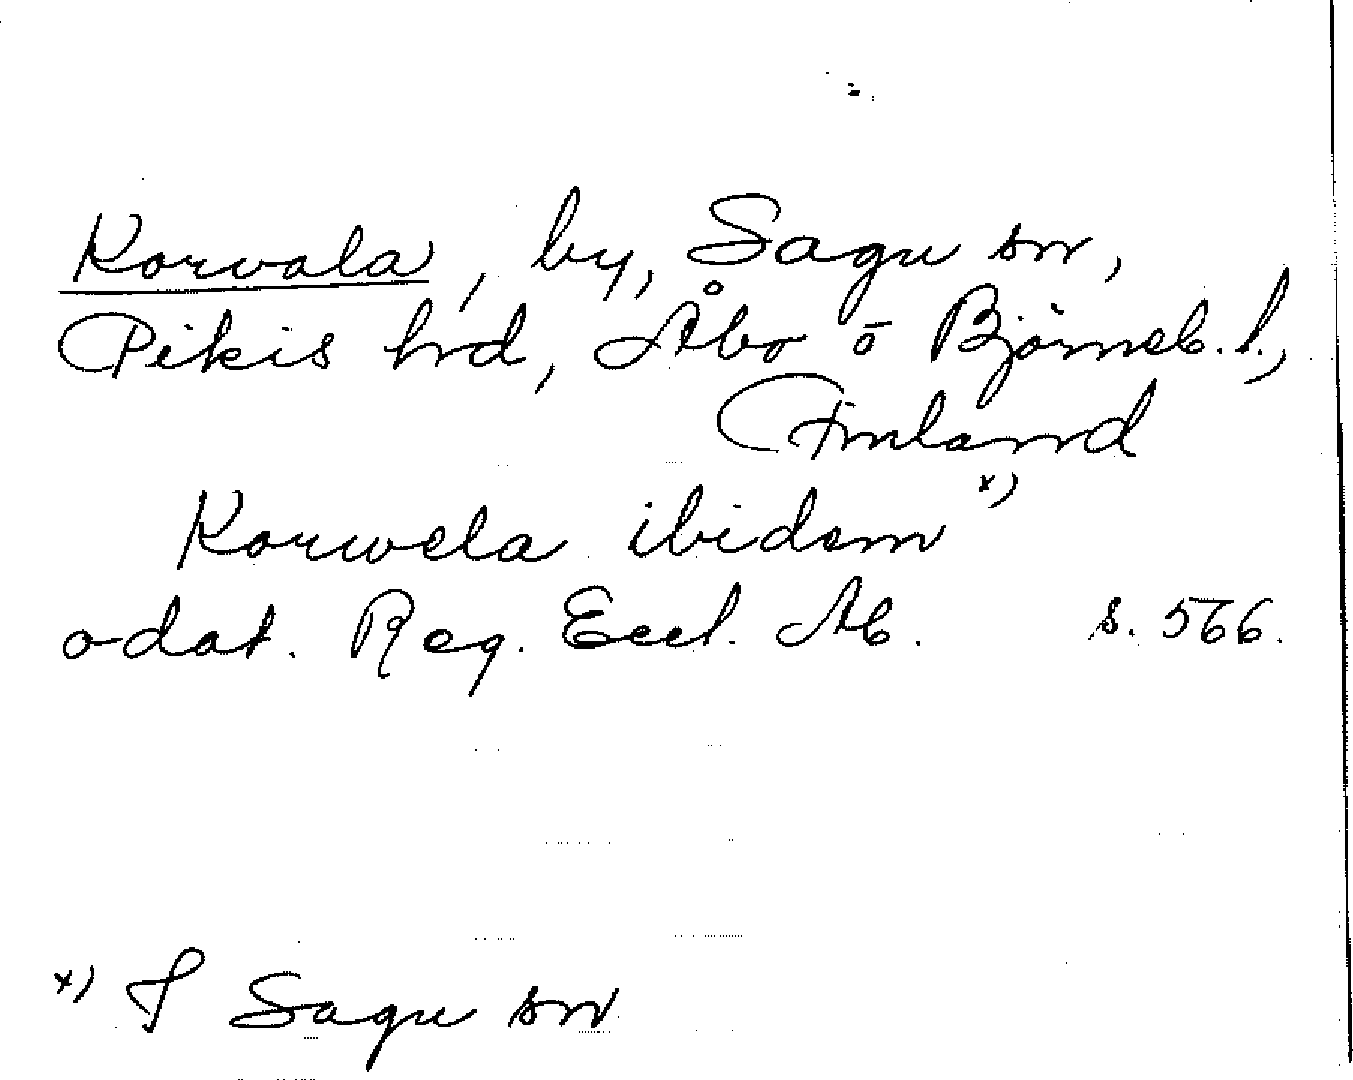 Korvala, by, Sagu sn,
Pikis hrd, Åbo o Björneb. l.,
Finland
Korwela ibidem x)
odat. Reg. Eccl. Ab. s. 566.
x) I Sagu sn